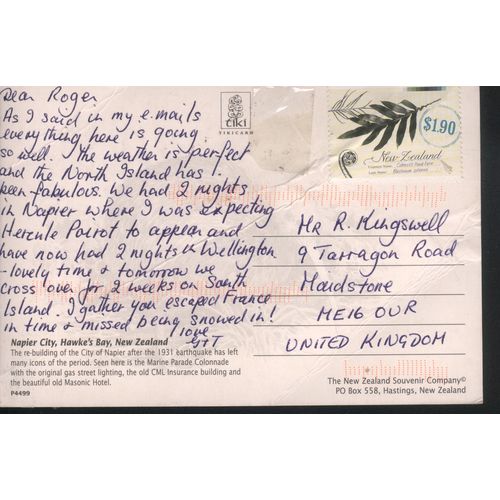 Dear Roger
As I said in my e.mails
everything here is going
so well. The weather is perfect
and the North Island has
been fabulous. We had 2 nights
in Napier where I was expecting
Hercule Poirot to appear and
have now had 2 nights in Wellington
- lovely time & tomorrow we
cross over for 2 weeks on South
Island. I gather you escaped France
in time & missed being snowed in!
love
Napier City, Hawke's Bay, New Zealand
The re-building of the City of Napier after the 1931 earthquake has left
many icons of the period. Seen here is the Marine Parade Colonnade
with the original gas street lighting, the old CML Insurance building and
the beautiful old Masonic Hotel.
P4499
tiki
TIKICARD
$1.90
New Zealand
Mr R. Kingswell
9 Tarragon Road
Maidstone
ME16 OUR
UNITED KINGDOM
The New Zealand Souvenir Company©
PO Box 558, Hastings, New Zealand